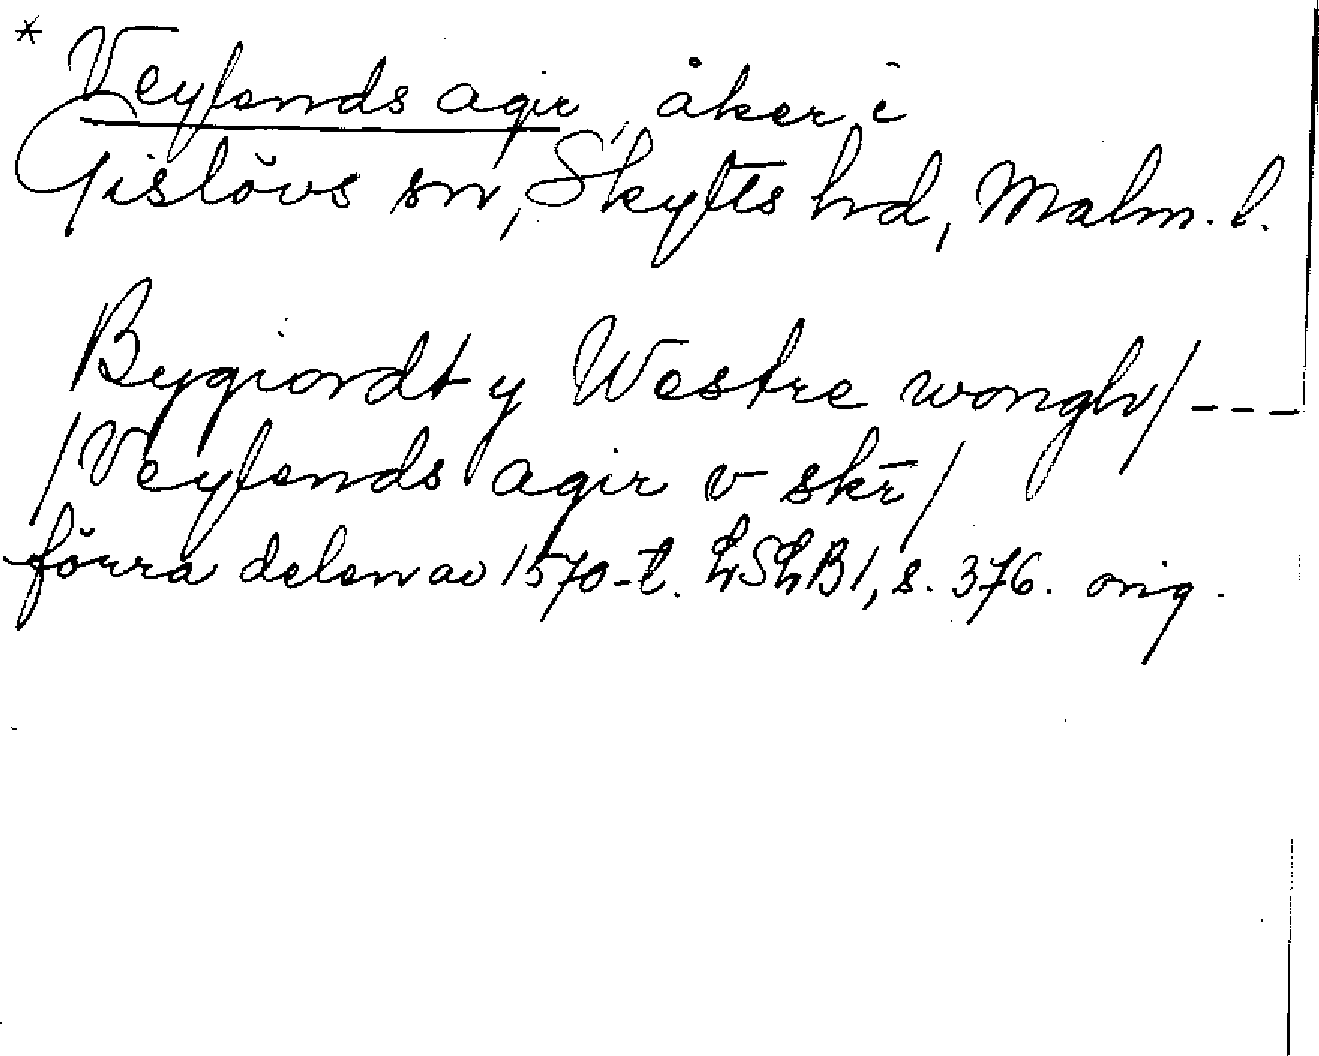 * Veylends agir, åker i
Gislövs sn, Skytts hd, Malm. l.
Bygiordt y Westre wongh/ ---
/Veylends agir v skr̄/
förra delen av 1570-t. LSLB1, s. 376. orig.